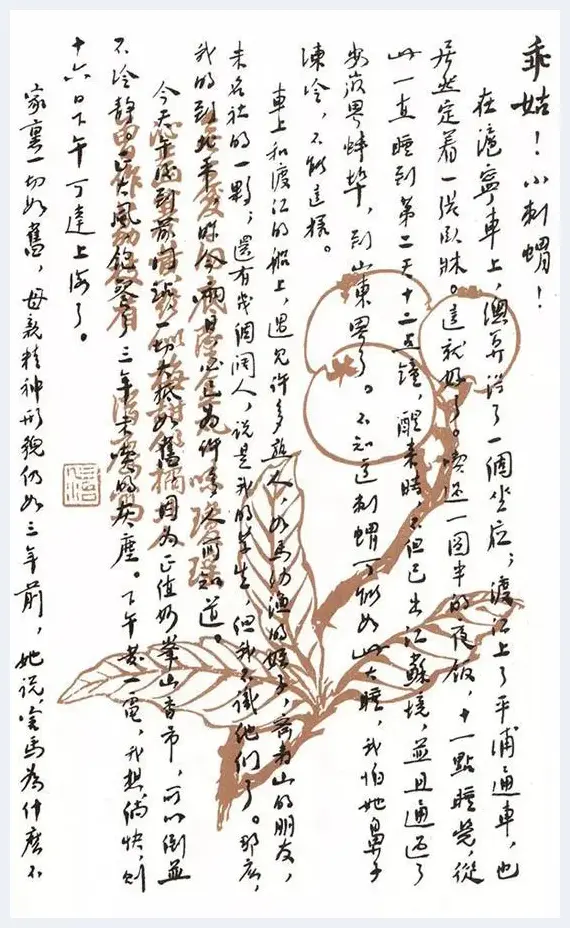 乖姑！小刺蝟！
在滬寧車上，總算得了一個坐位；渡江上了平浦通車，也
居然定着一張臥牀。這就好了。喫过一圓半的夜飯，十一點睡覺，從
此一直睡到第二天十二點鐘，醒来時，不但已出江蘇境，並且通过了
安徽界蚌埠，到山東界了。不知道刺蝟可能如此大睡，我怕她鼻子
凍冷，不能這樣。
車上和渡江的船上，遇見許多熟人，如馬幼漁的姪子，齊壽山的朋友，
未名社的一夥；還有幾個闊人，說是我的學生，但我不識他們了。那麽，
我的到北平，昨今兩日，必已為許多人所知道。
今天午後到前門站，一切大抵如舊，因為正值妙峯山香市，可以倒並
不冷静。正大風，飽餐了三年未喫的灰塵。下午發一電，我想，倘快，則
十六日下午可達上海了。
家裏一切如舊，母親精神形貌仍如三年前，她說，害馬為什麽不